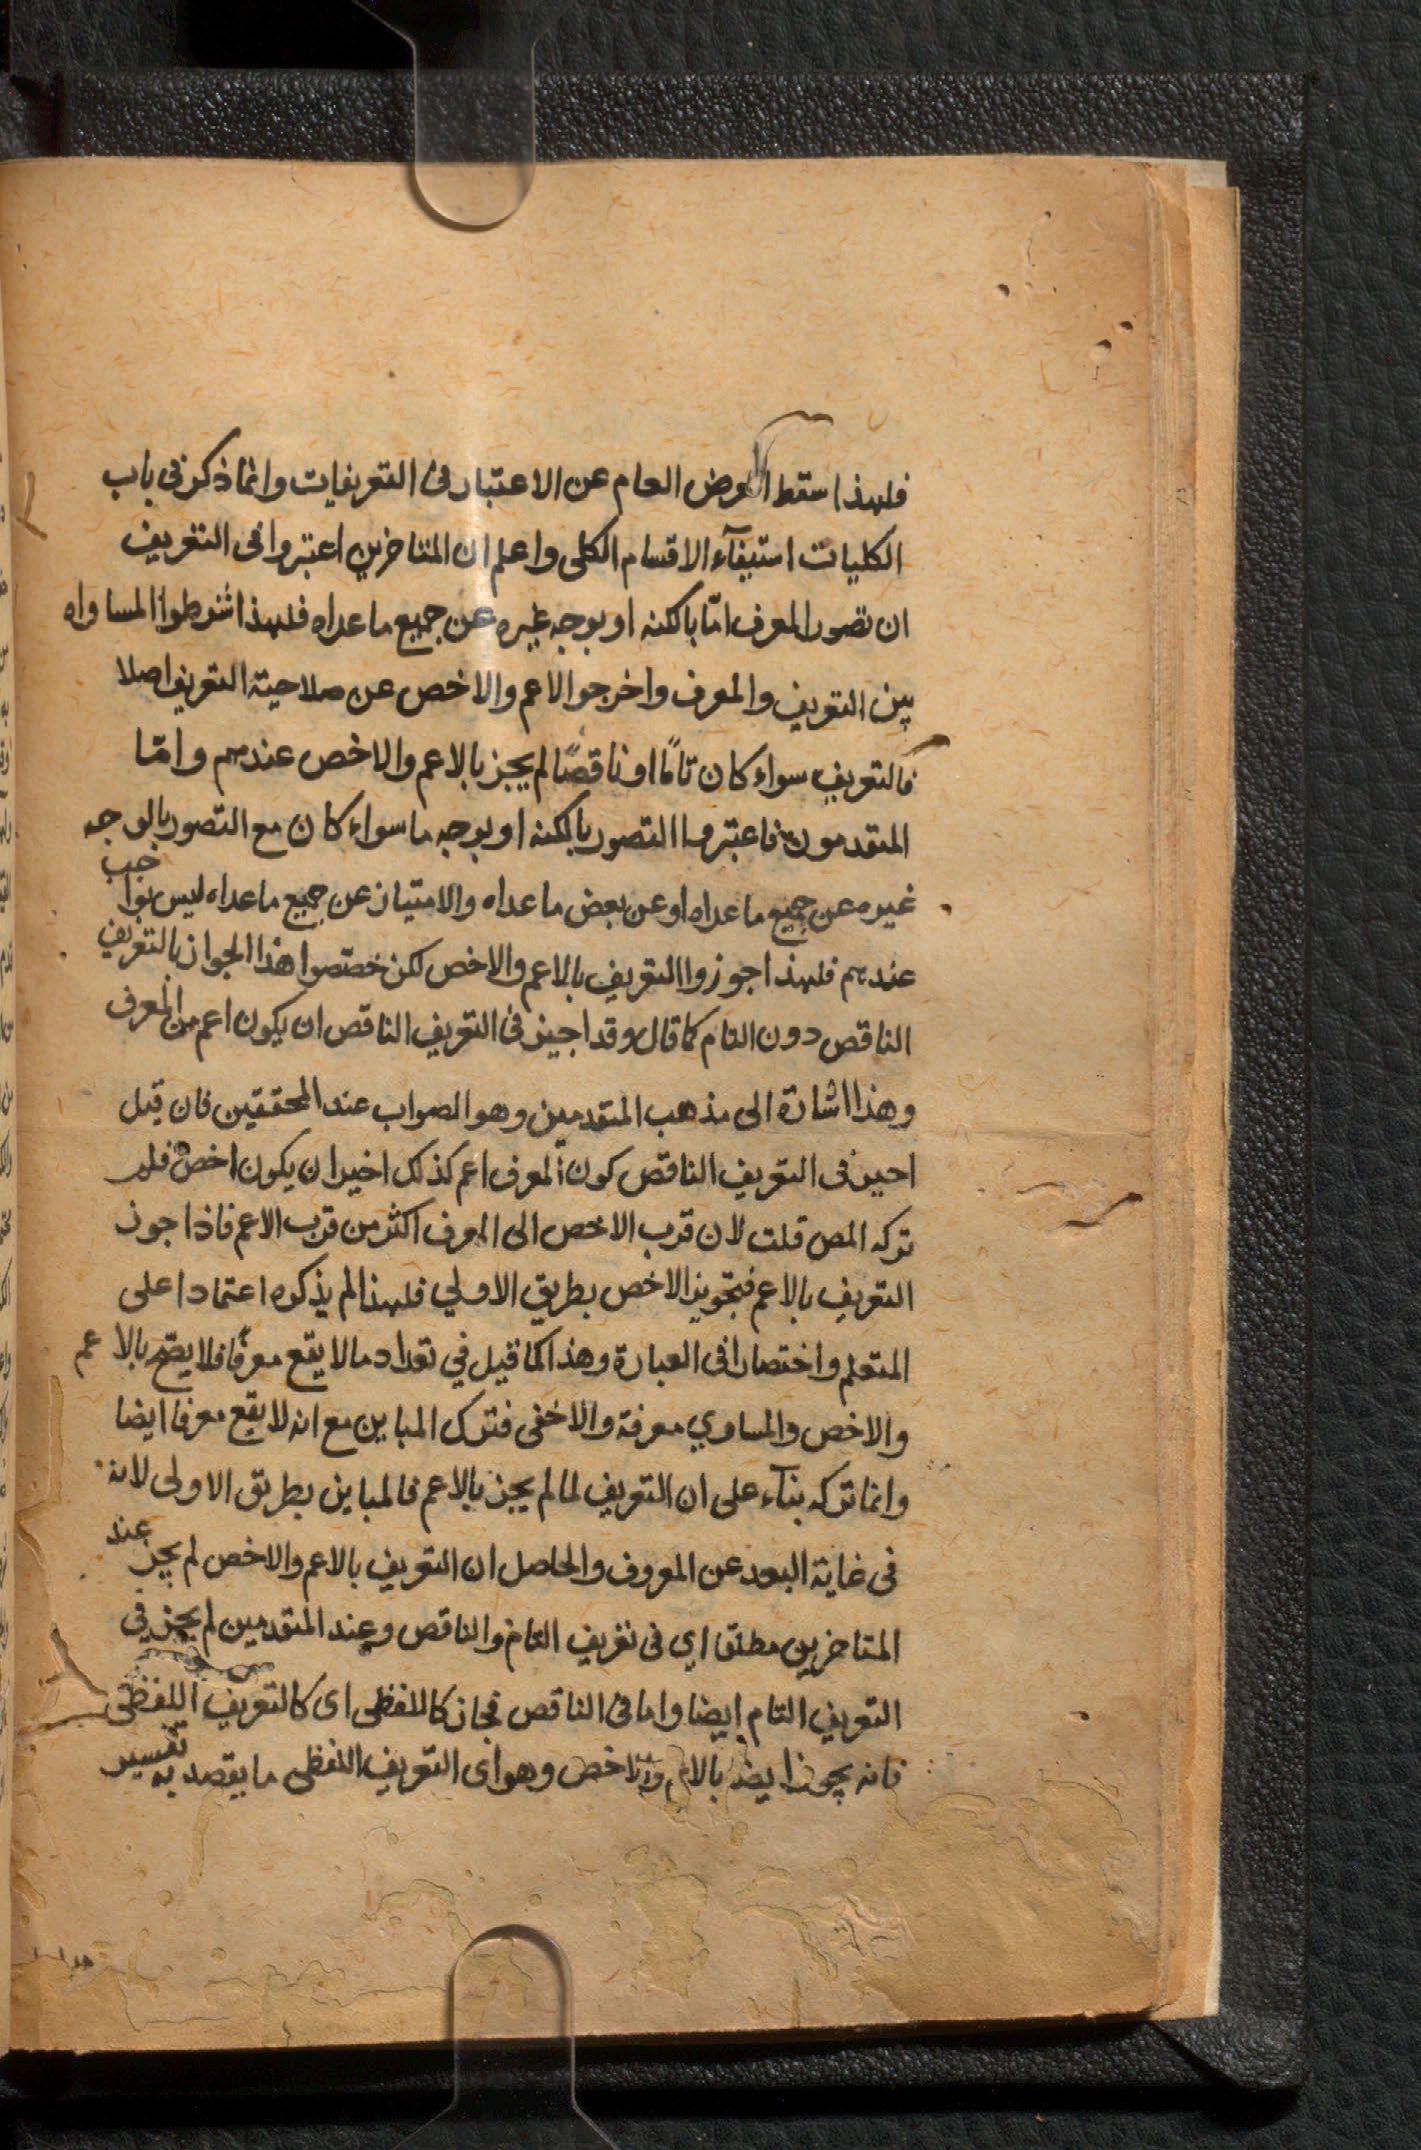 فلهذا سقط العرض العام عن الاعتبار فى التعريفات وانما ذكر فى باب
الكليات استيفآء الاقسام الكلى واعلم ان المتاخرين اعتبروا فى التعريف
ان تصور المعرف امّا بالكنه او بوجه غيره عن جميع ماعداه فلهذا شرطوا المساواه
بين التعريف والمعرف واخرجوا الاعم والاخص عن صلاحية التعريف اصلا
فالتعريف سواء كان تامًا او ناقصًا لم يجز بالاعم والاخص عندهم وامّا
المتقدمون فاعتبروا التصور بالكنه او بوجه ما سواء كان مع التصور بالوجه
غيره عن جميع ماعداه او عن بعض ماعداه والامتياز عن جميع ماعداه ليس بواجب
عندهم فلهذا جوزوا التعريف بالاعم والاخص لكن خصّصوا هذا الجواز بالتعريف
الناقص دون التام كما قال وقد اجيز فى التعريف الناقص ان يكون اعم من المعرف
وهذا اشارة الى مذهب المتقدمين وهو الصواب عند المحققين فان قيل
اجيز فى التعريف الناقص كون المعرف اعم كذلك اخير ان يكون اخص فلم
تركه المص قلت لان قرب الاخص الى المعرف اكثر من قرب الاعم فاذا جوز
التعريف بالاعم فبتجويز الاخص بطريق الاولي فلهذا لم يذكره اعتمادا على
المتعلم واختصارا فى العبارة وهذا كما قيل في تعداد مالا يقع معرفًا فلا يصّح بالاعم
والاخص والمساوي معرفة والاخفى فترك المباين مع انه لا يقع معرفا ايضا
وانما تركه بنآء على ان التعريف لما لم يجز بالاعم فالمباين بطريق الاولى لانه
فى غاية البعد عن المعروف والحاصل ان التعريف بالاعم والاخص لم يجز عند
المتاخرين مطلقا اي فى تعريف التام والناقص وعند المتقدمين لم يجز في
التعريف التام ايضا واما فى الناقص فجاز كاللفظى اى كالتعريف اللفظى
فانه يجوز ايضا بالاعم والاخص وهو اى التعريف اللفظى ما يقصد به تفسير